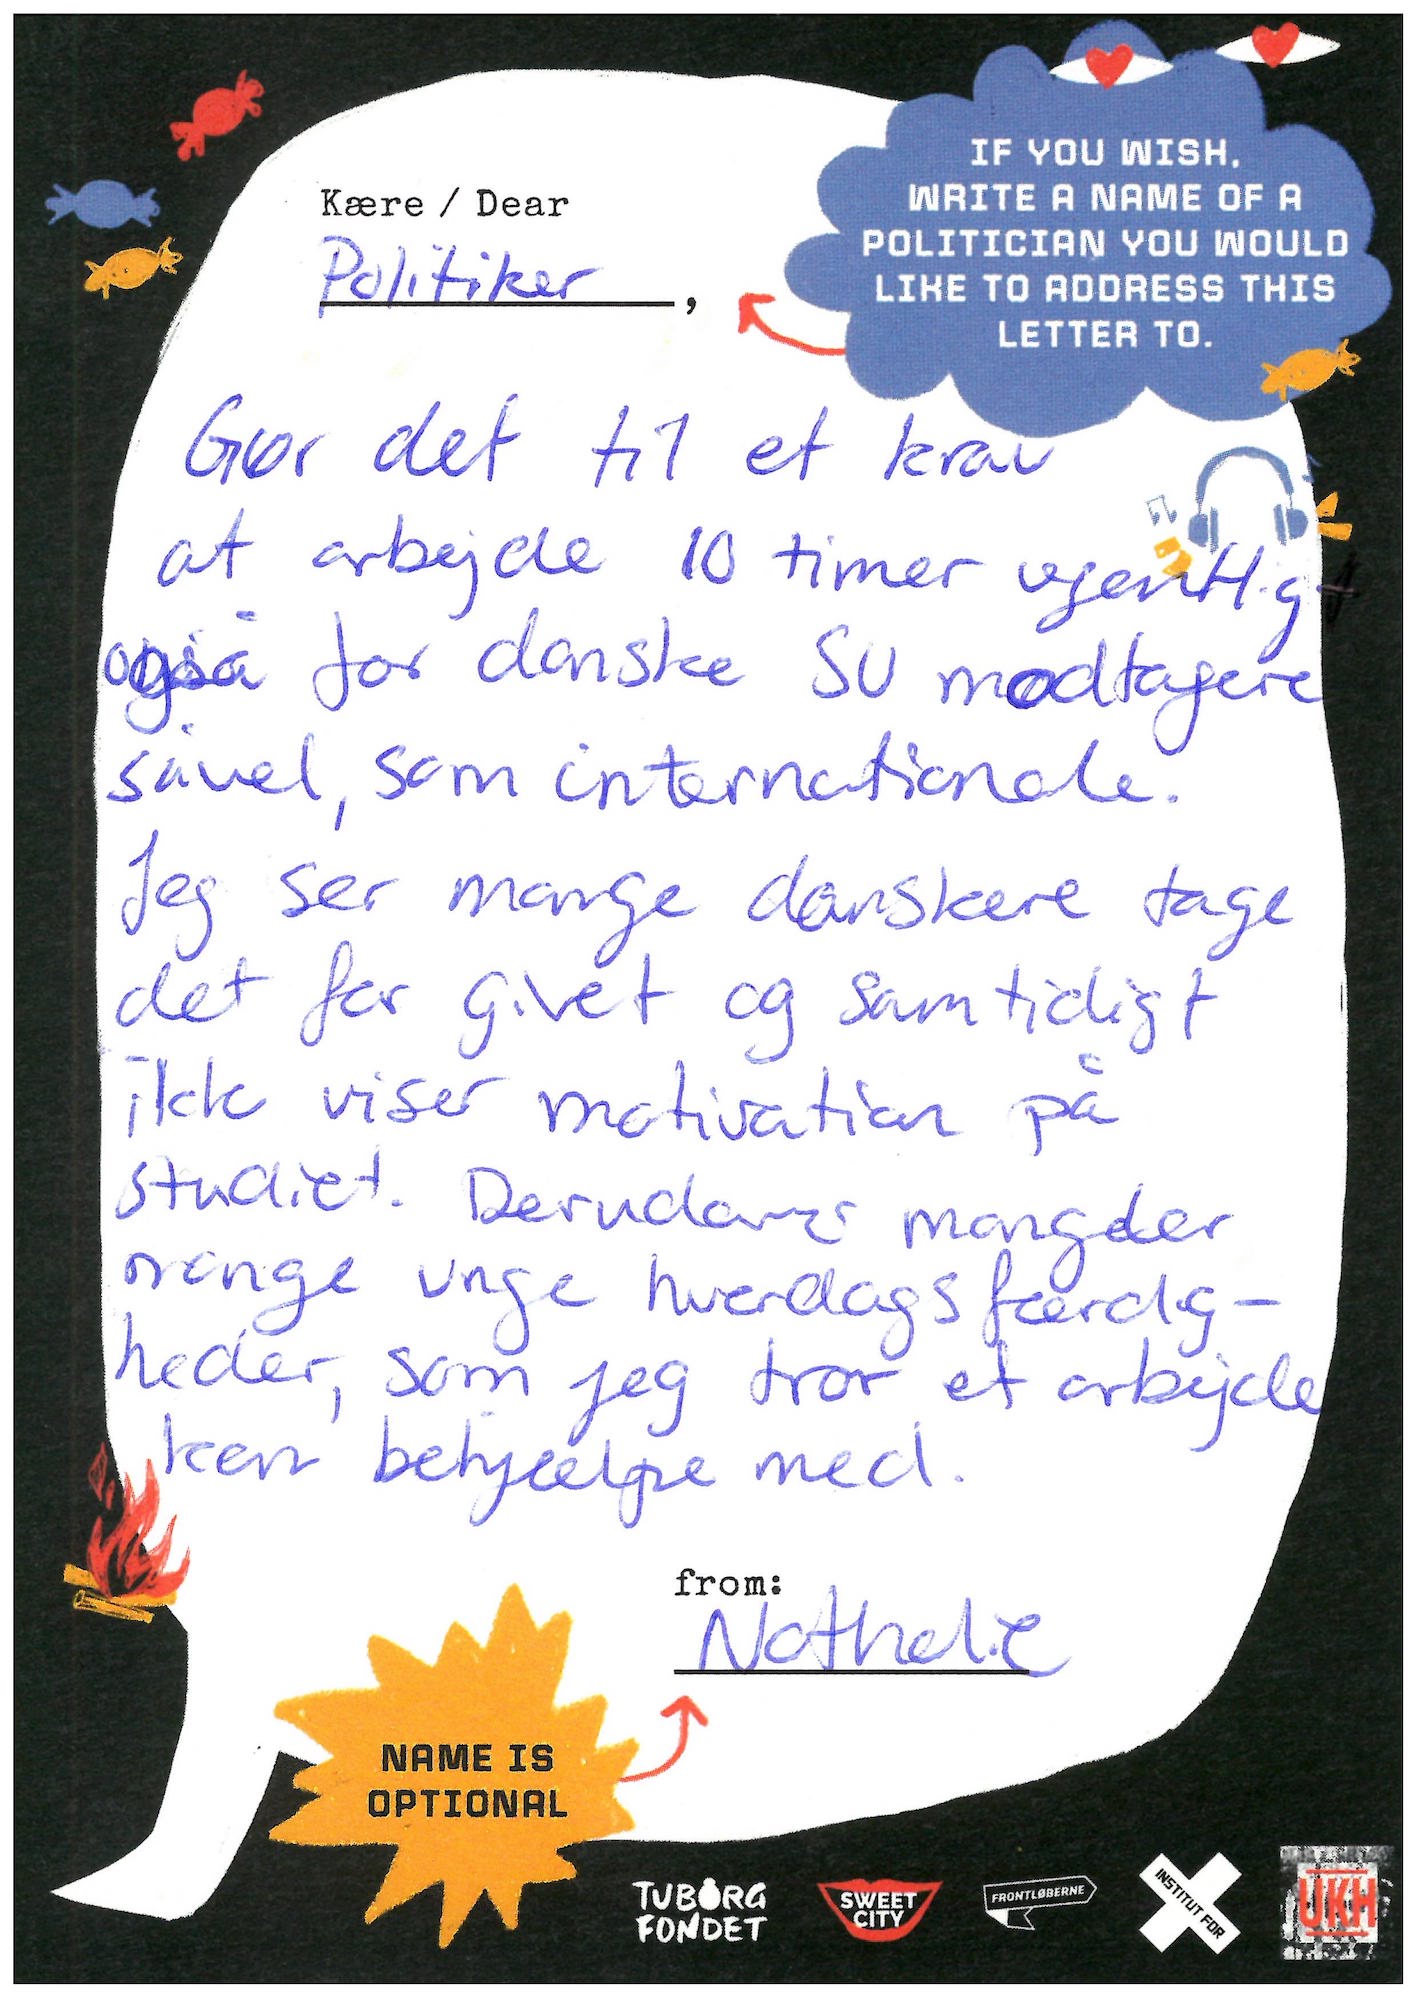 IF YOU WISH,
WRITE A NAME OF A
POLITICIAN YOU WOULD
LIKE TO ADDRESS THIS
LETTER TO.
Kære / Dear
Politiker,
Gør det til et krav
at arbejde 10 timer ugentligt
også for danske SU modtagere
såvel, som internationale.
Jeg ser mange danskere tage
det for givet og samtidigt
ikke viser motivation på
studiet. Derudover mangler
mange unge hverdagsfærdig-
heder, som jeg tror et arbejde
kan behjælpe med.
from:
Nathalie
NAME IS
OPTIONAL
TUBORG
FONDET
SWEET
CITY
FRONTLØBERNE
INSTITUT FOR
UKH